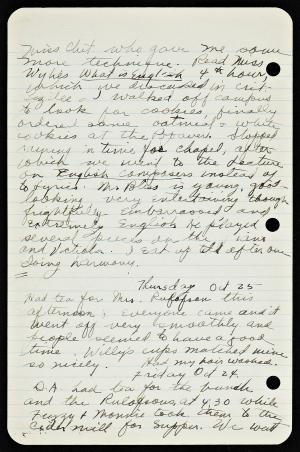 Miss Chit who gave me some
more technique. Read Miss
Wylies What is English 4th hour,
which we discussed in crit-
Lee & I walked off campus
to look for cookies, finally
ordered some oatmeal & white
cookies at the Beaver. Stopped
in time for chapel, after
which we went to the lecture
on English composers instead of
lyrics. Mr. Bliss is young, good-
looking, very entertaining though
frightfully embarrassed and
extremely English. He played
several pieces on the piano
and Victrola. I sat up till after one
doing harmony.
Thursday Oct 25
Had tea for Mrs. this
afternoon; everyone came and it
went off very smoothly and
people seemed to have a good
time. Willy's cups matched mine
so nicely. Had my hair washed.
Friday Oct 24.
D.A. had tea for the bunch
and the at 4.30 while
Fuzzy & Monnie took them to the
Cider mill for supper. We went